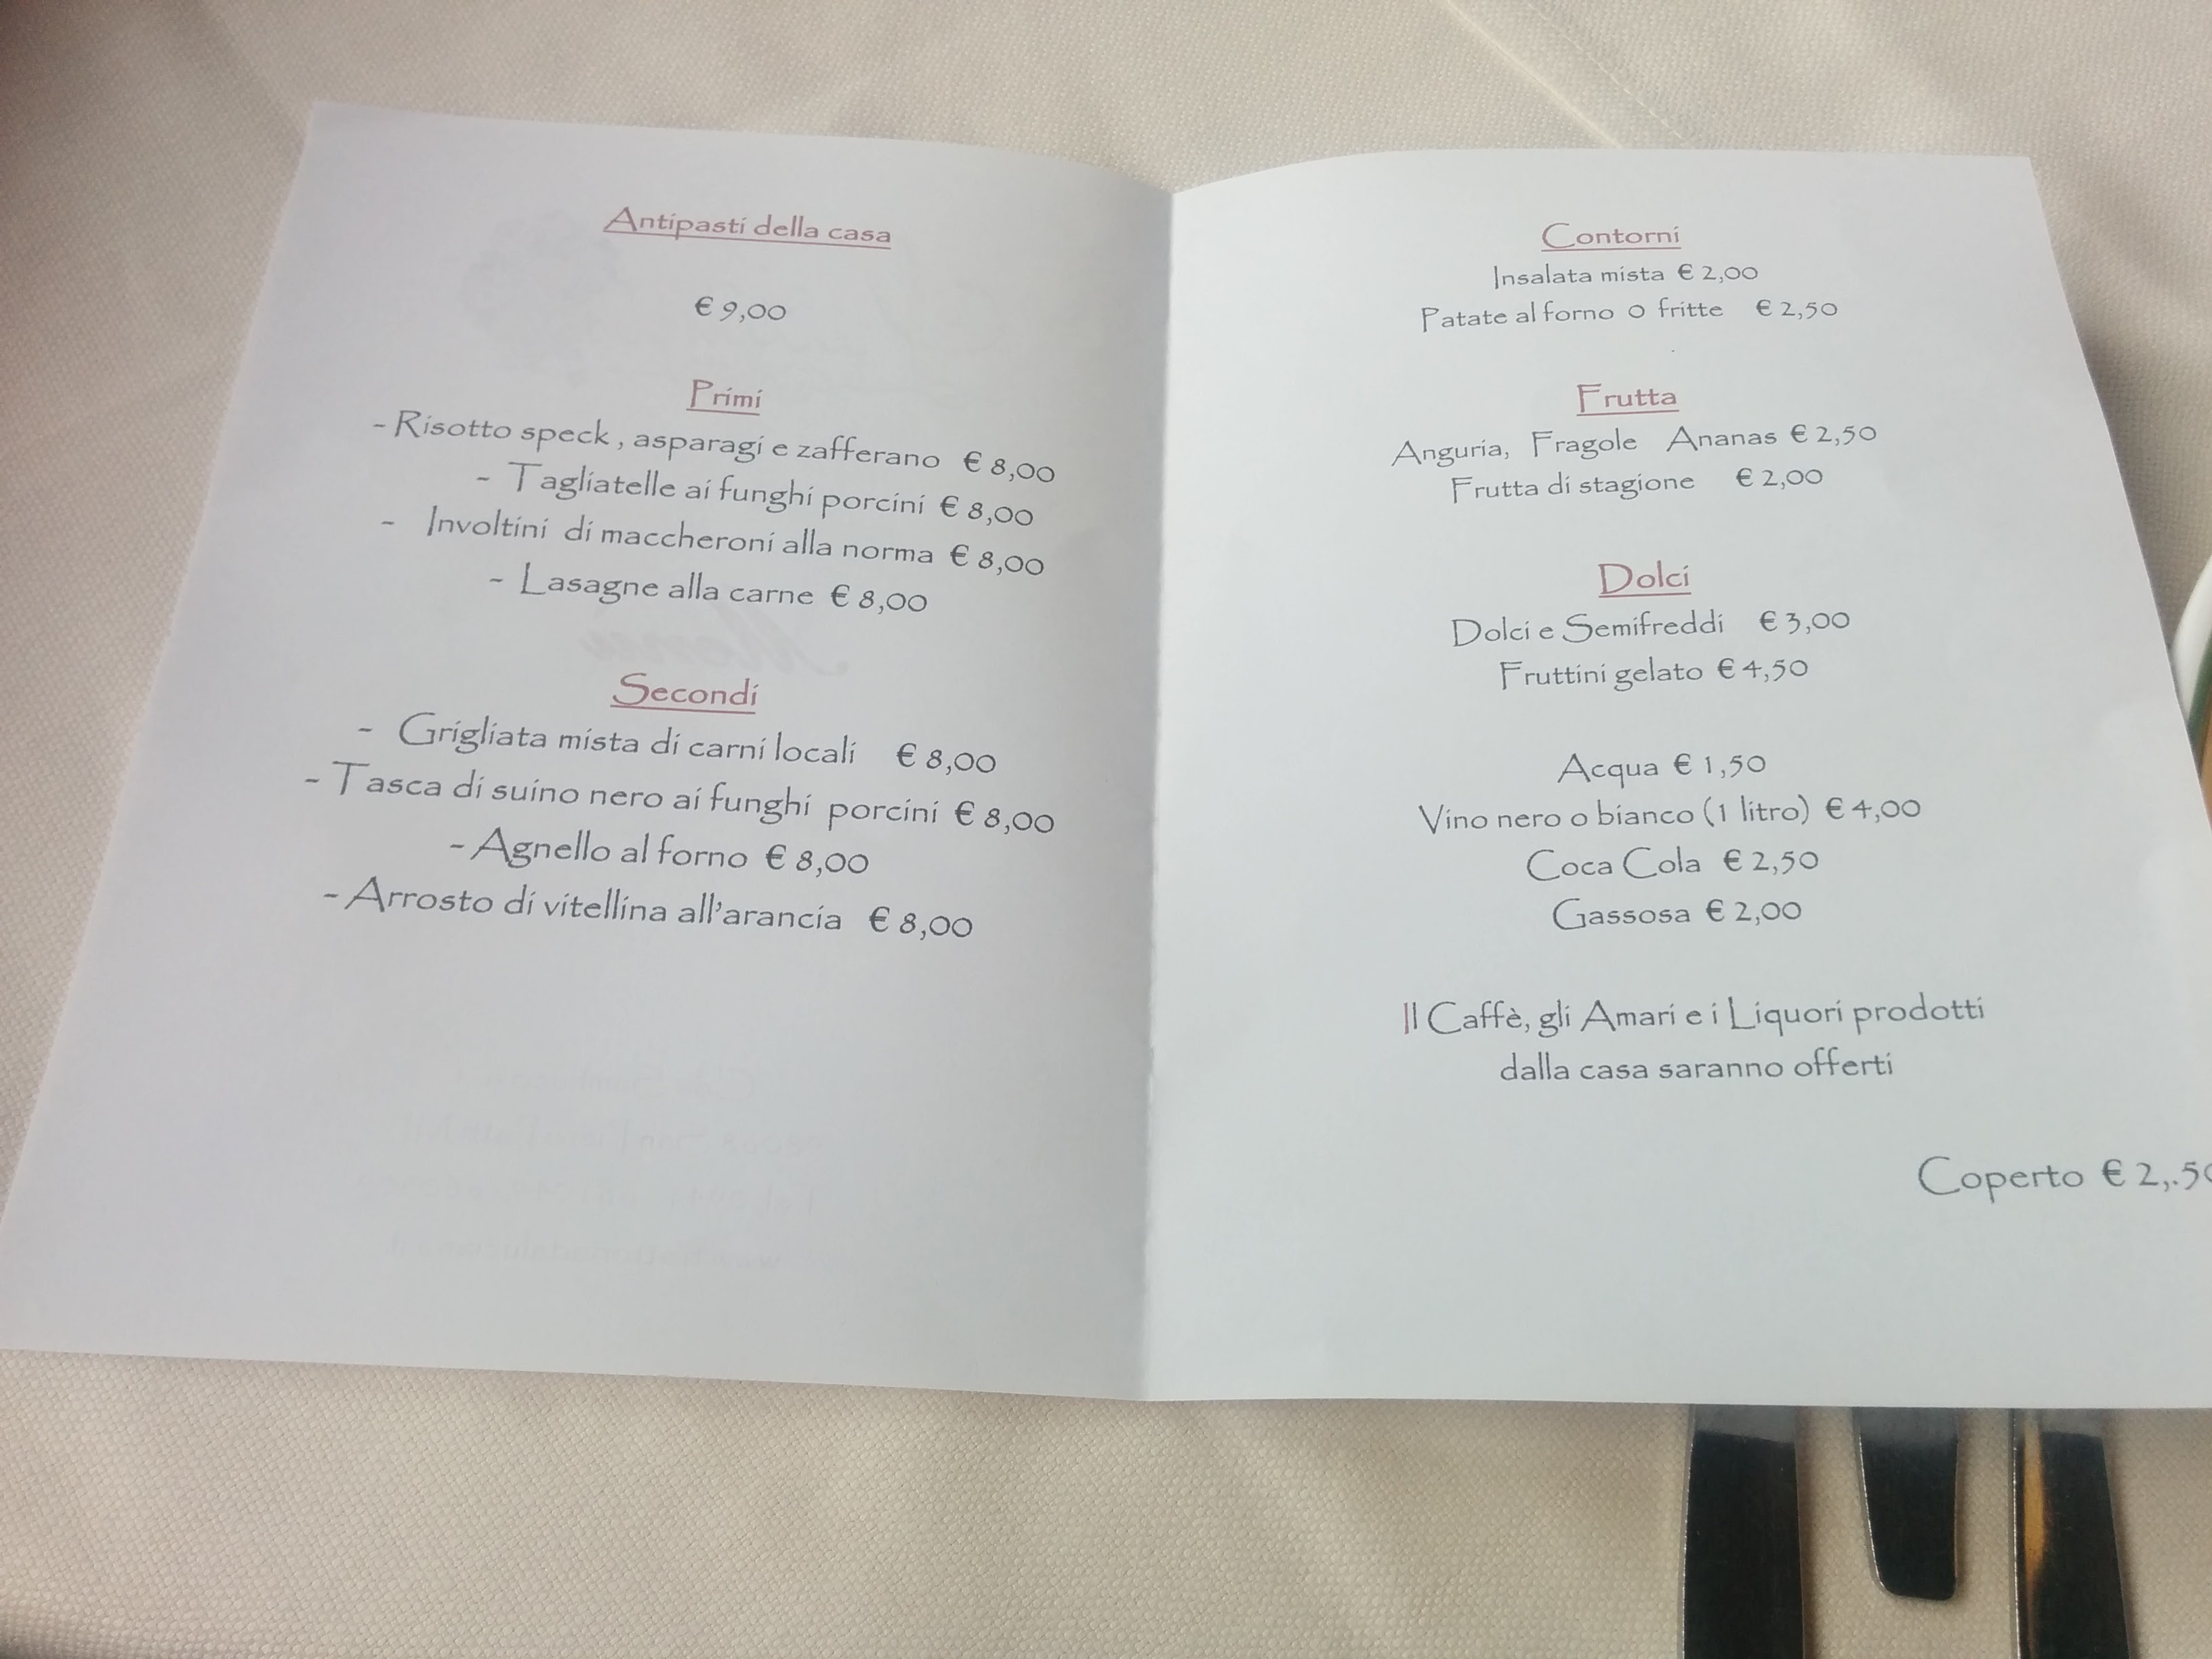 Antipasti della casa
€ 9,00
Primi
- Risotto speck , asparagi e zafferano € 8,00
- Tagliatelle ai funghi porcini € 8,00
- Involtini di maccheroni alla norma € 8,00
- Lasagne alla carne € 8,00
Secondi
- Grigliata mista di carni locali € 8,00
- Tasca di suino nero ai funghi porcini € 8,00
- Agnello al forno € 8,00
- Arrosto di vitellina all'arancia € 8,00
Contorni
Insalata mista € 2,00
Patate al forno o fritte € 2,50
Frutta
Anguria, Fragole Ananas € 2,50
Frutta di stagione € 2,00
Dolci
Dolci e Semifreddi € 3,00
Fruttini gelato € 4,50
Acqua € 1,50
Vino nero o bianco (1 litro) € 4,00
Coca Cola € 2,50
Gassosa € 2,00
Il Caffè, gli Amari e i Liquori prodotti
dalla casa saranno offerti
Coperto € 2,.50